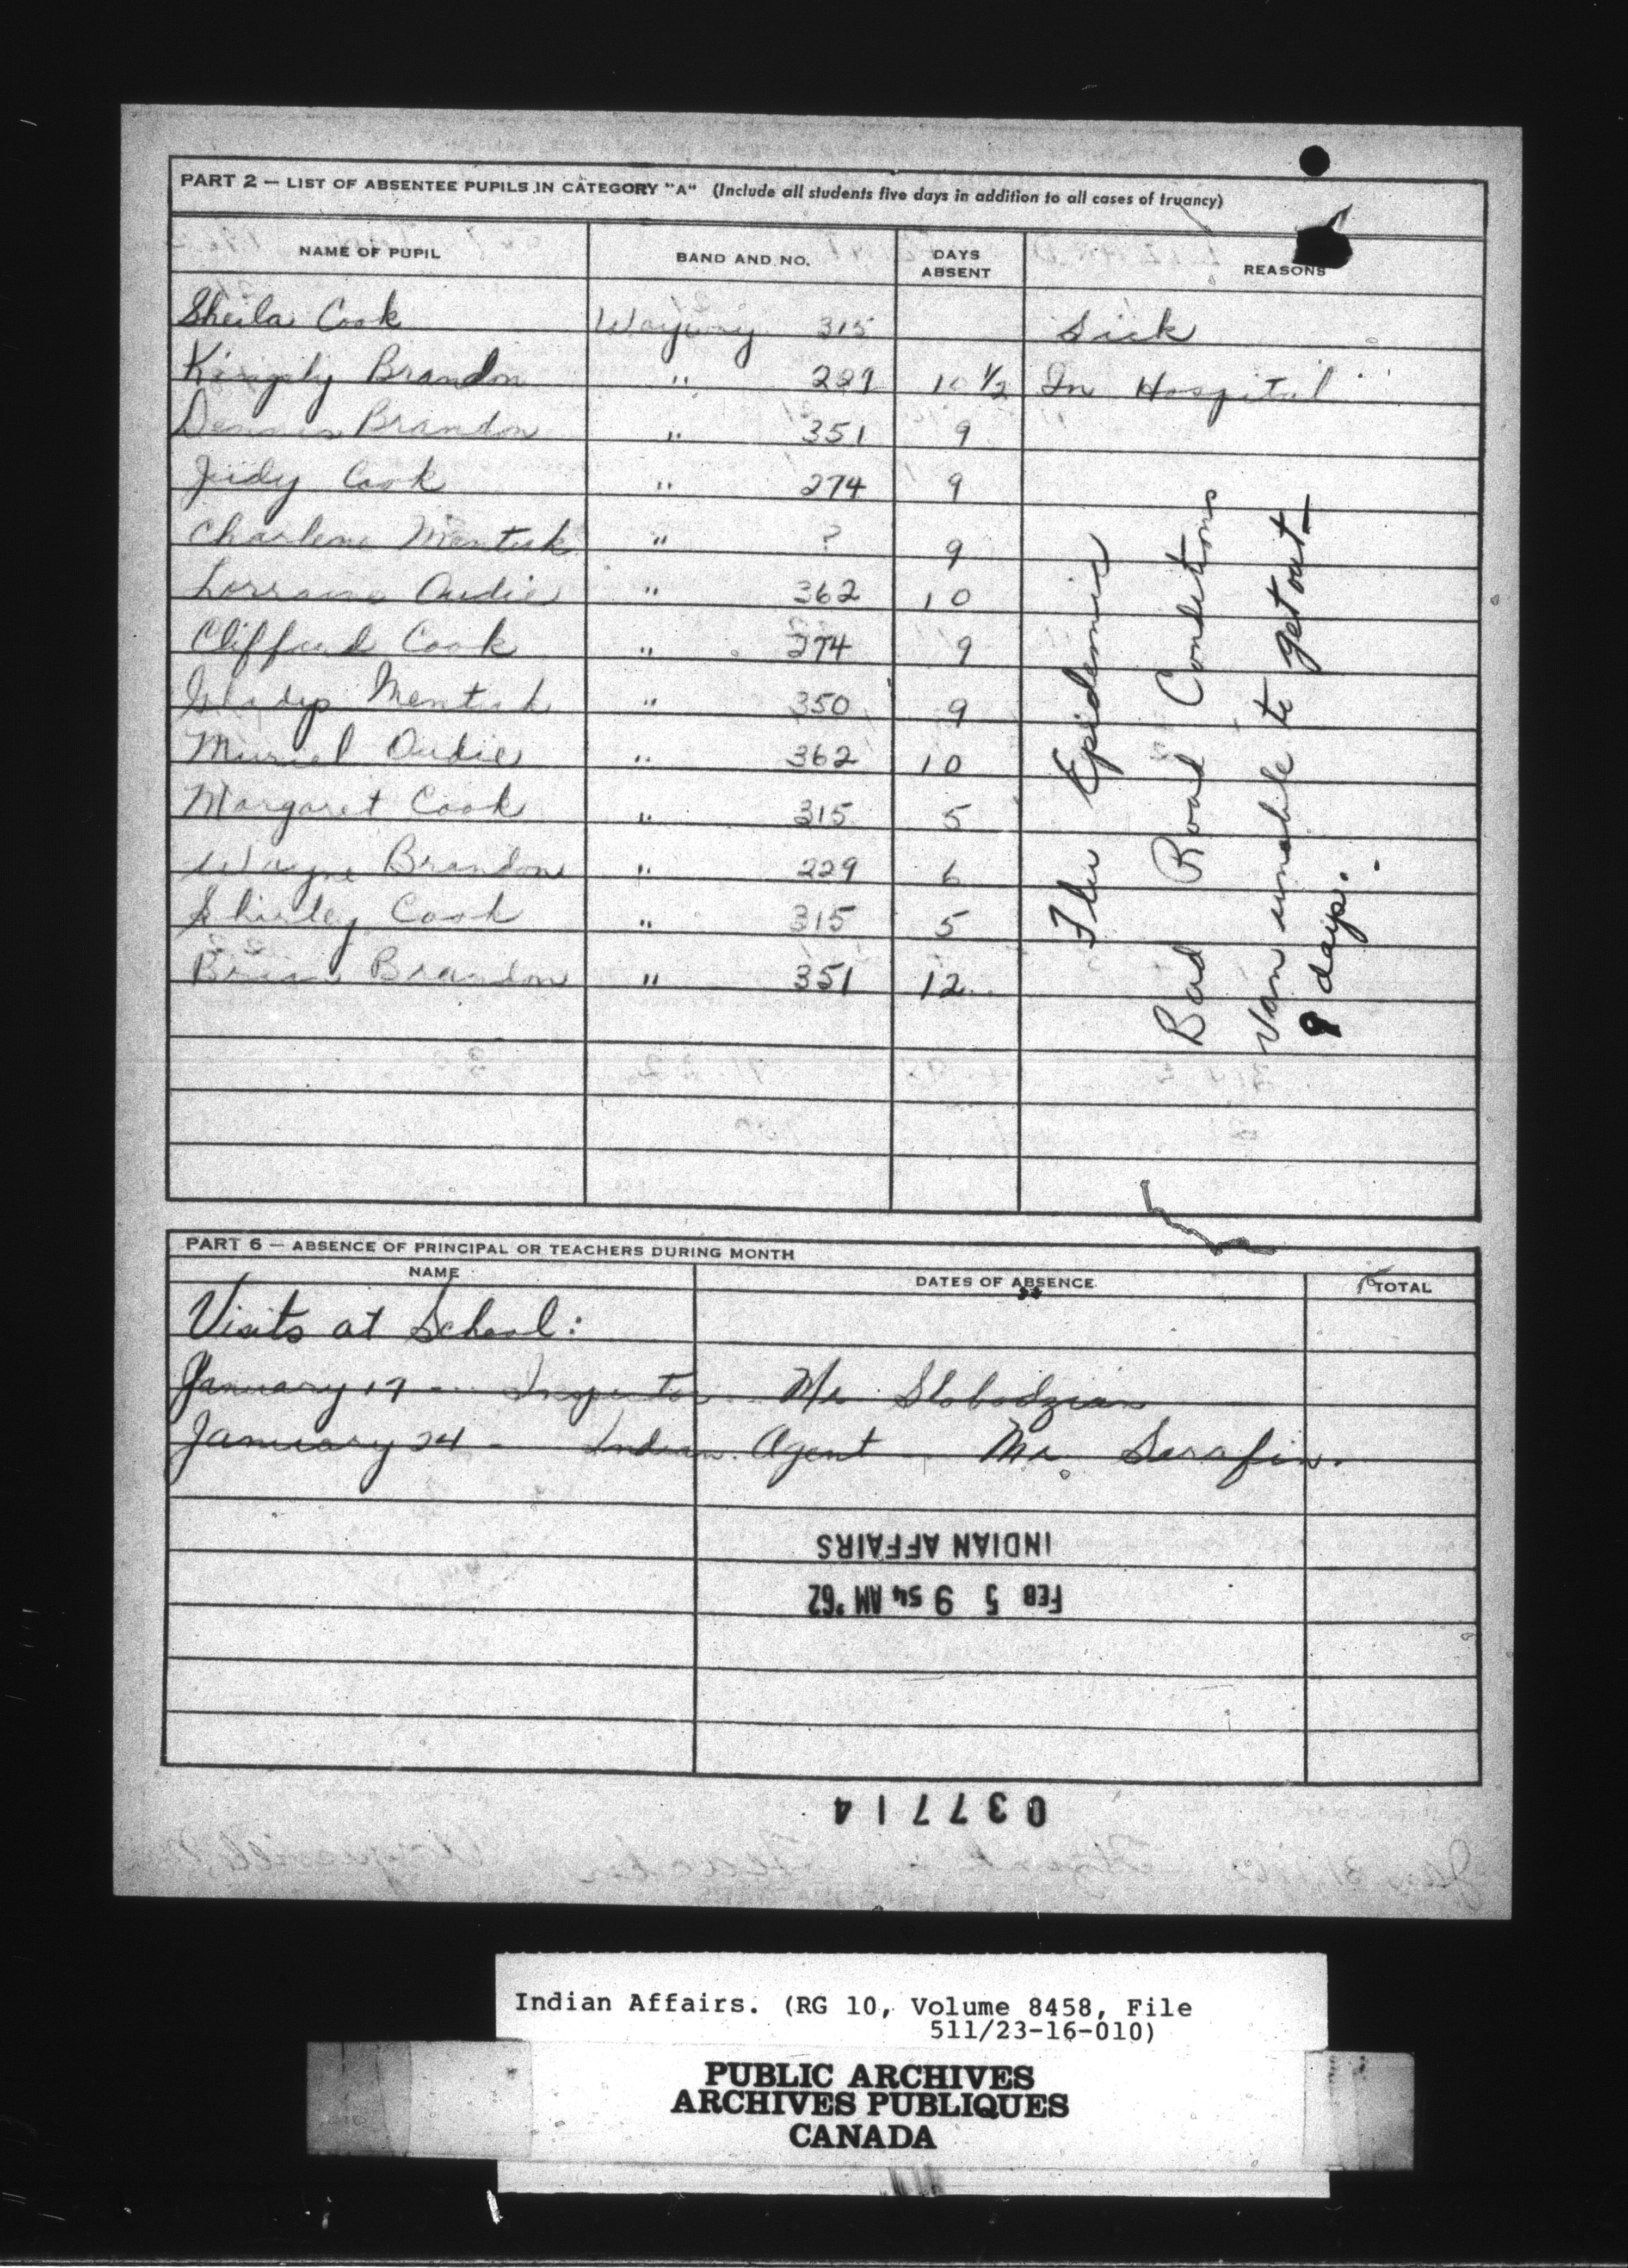 PART 2 — LIST OF ABSENTEE PUPILS IN CATEGORY "A" (Include all students five days in addition to all cases of truancy)
NAME OF PUPIL BAND AND NO. DAYS ABSENT REASONS
Sheila Cook 315 Sick
Brandon " 229 10 1/2 In Hospital
Dennis Brandon " 351 9
Judy Cook " 274 9
Charlene Mentuck " ? 9
Lorraine Audie " 362 10
Clifford Cook " 274 9
Gladys Mentuck " 350 9
Muriel Audie " 362 10
Margaret Cook " 315 5
Wayne Brandon " 229 6
Shirley Cook " 315 5
Brian Brandon " 351 12
Flu Epidemic
Bad Road Conditions
Van unable to get out —
9 days.
PART 6 — ABSENCE OF PRINCIPAL OR TEACHERS DURING MONTH
NAME DATES OF ABSENCE TOTAL
Visits at School:
January 17 - Inspector Mr. Slobodzian
January 24 - Indian Agent - Mr. Serafin.
INDIAN AFFAIRS
FEB 5 9 54 AM '62
037714
Indian Affairs. (RG 10, Volume 8458, File
511/23-16-010)
PUBLIC ARCHIVES
ARCHIVES PUBLIQUES
CANADA